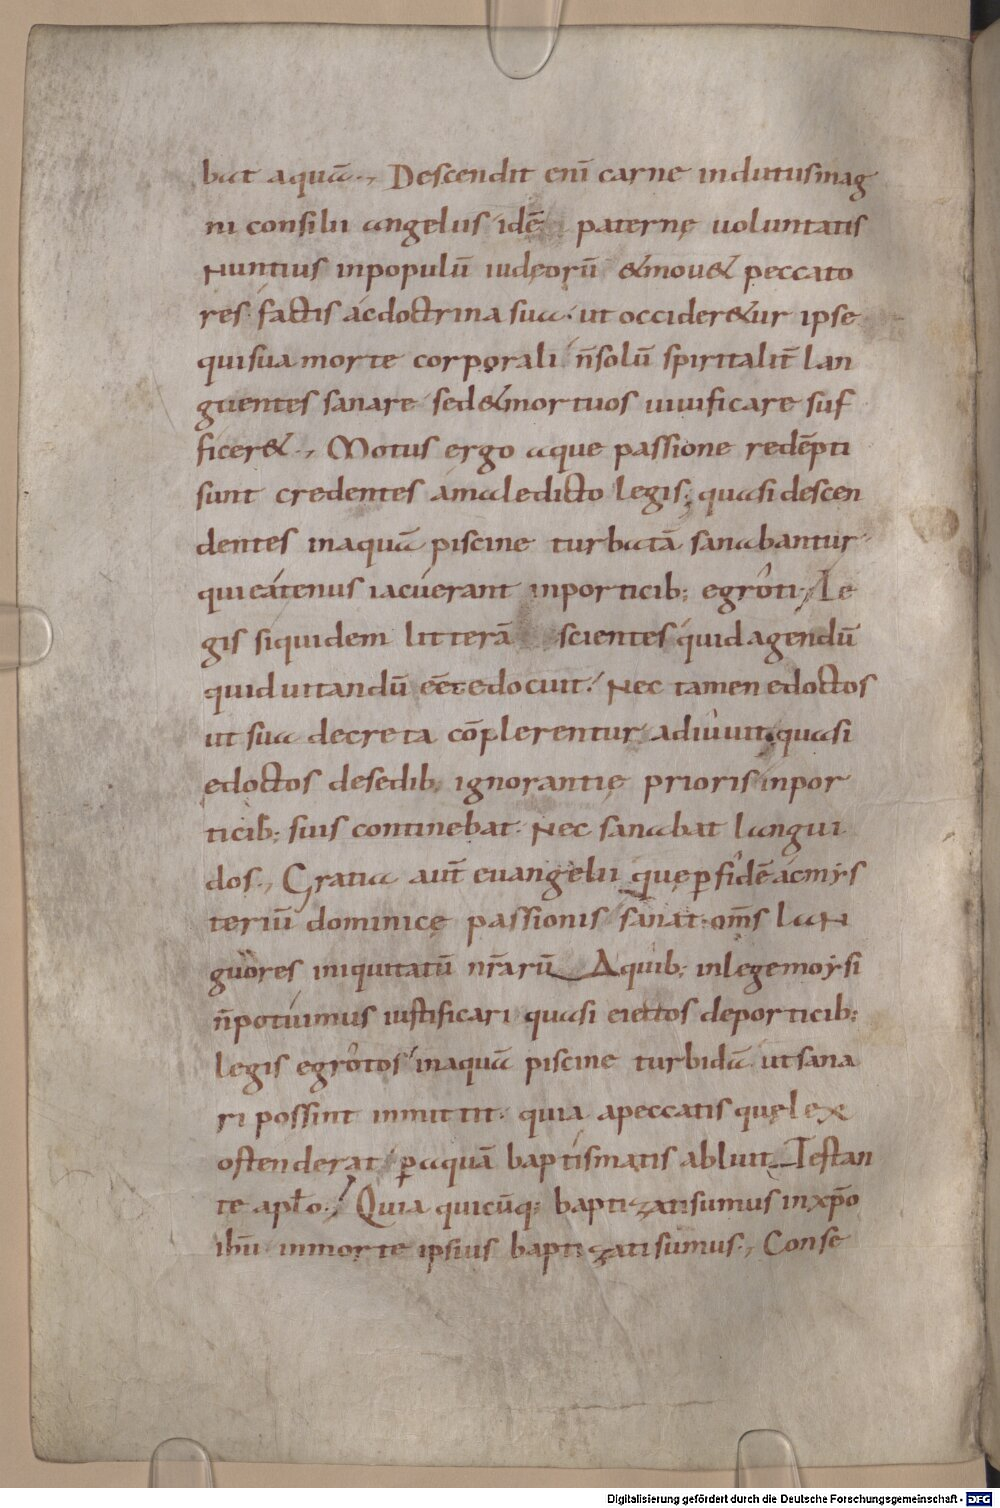 bat aquā., Descendit enī carne indutus mag
ni consilii angelus idē paternę uoluntatis
Nuntius inpopulū iudęorū &mou& peccato
res factis ácdoctrina sua. ut occider&ur ipse
quisua morte corporali n̄solū spiritalit̄ lan
guentes sanare sed&mortuos uiuificare suf
ficer&., Motus ergo aque passione redēpti
sunt credentes ámaledicto legis; quasi descen
dentes inaquā piscine turbatā sanabantur
qui eátenus iacúerant inporticib; egrôti, Le
gis siquidem litterā scientes quid agendū
quid uitandū eēt edocuit. Nec tamen edoctos
ut sua decreta cōplerentur adiûuit. quasi
edoctos desedib; ignorantię prioris inpor
ticib; suis continebat. Nec sanabat langui
dos., Gratia aut̄ euangelii quę ꝑ fidē ácmys
teriū dominicę passionis sanat om̄s lan
guores iniquitatū nr̄arū Aquib; inlegemoysi
n̄potúimus iustificari quasi eiectos deporticib;
legis egrôtos inaquā piscine turbidā utsana
ri possint inmittit. quia apeccatis quę lex
ostenderat ꝑaquā baptismatis abluit. Testan
te apl̄o., Quia quicūq; baptizatisumus inxp̄o
ihū inmorte ipsius baptizatisumus., Conse
Digitalisierung gefördert durch die Deutsche Forschungsgemeinschaft - DFG